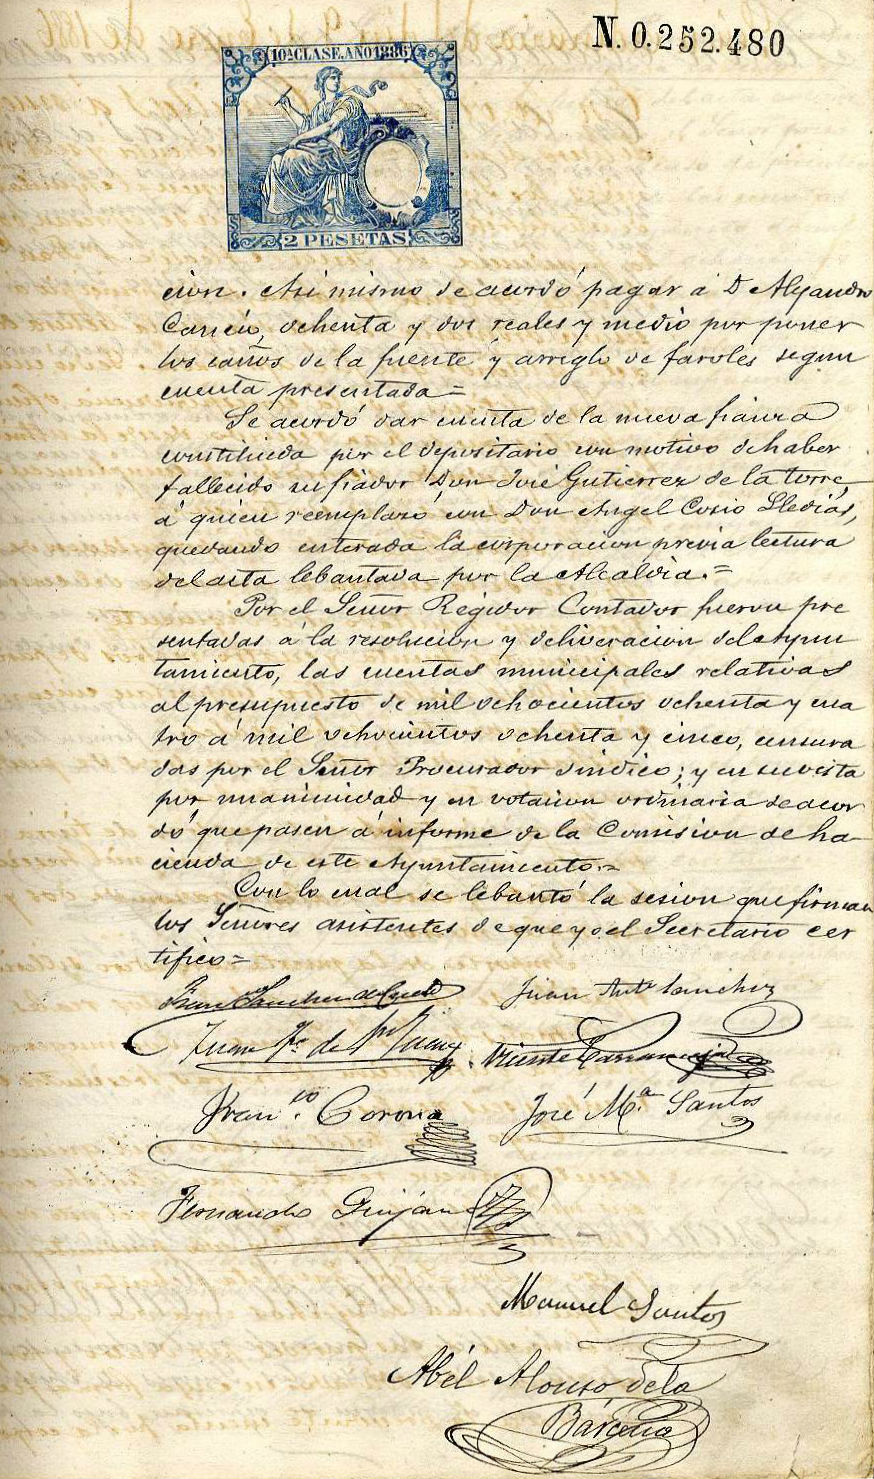 N. 0.252.480
10ª CLASE. AÑO 1886
2 PESETAS
cion. Asi mismo se acordó pagar á D Alejandro
ochenta y dos reales y medio por poner
los caños de la fuente y arreglo de faroles segun
cuenta presentada=
Se acordó dar cuenta de la nueva fianza
constituida por el depositario con motivo de haber
fallecido su fiador Don José Gutierrez de la torre,
á quien reemplazó con Don Angel Cosio Lledias,
quedando enterada la corporacion previa lectura
del acta lebantada por la Alcaldia.=
Por el Señor Regidor Contador fueron pre
sentadas á la resolucion y deliveracion del ayun
tamiento, las cuentas municipales relativas
al presupuesto de mil ochocientos ochenta y cua
tro á mil ochocientos ochenta y cinco, censura
das por el Señor Procurador Sindico; y en su vista
por unanimidad y en votacion ordinaria se acor
dó que pasen á informe de la Comision de ha-
cienda de este Ayuntamiento.=
Con lo cual se lebantó la sesion que firman
los Señores asistentes de que yo el Secretario cer
tifico=
Juan Antº Sanchez
Juan de
Vicente
Franco. Corona
José Mª Santos
Fernando Guijan
Manuel Santos
Abél Alonso de la
Bárcena